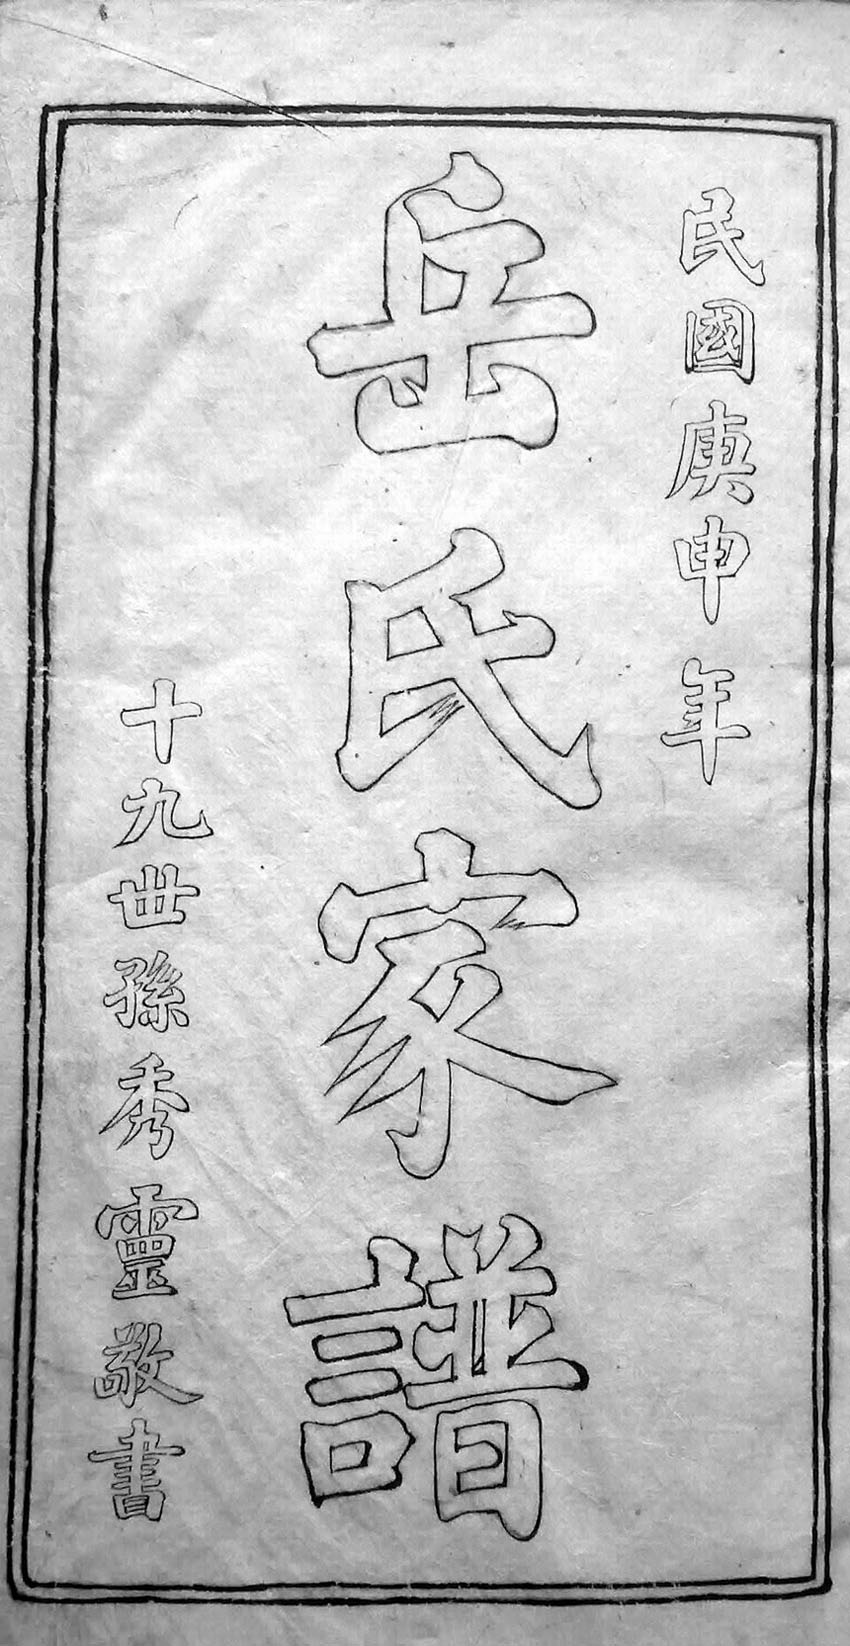 民國庚申年
岳氏家譜
十九世孫秀靈敬書